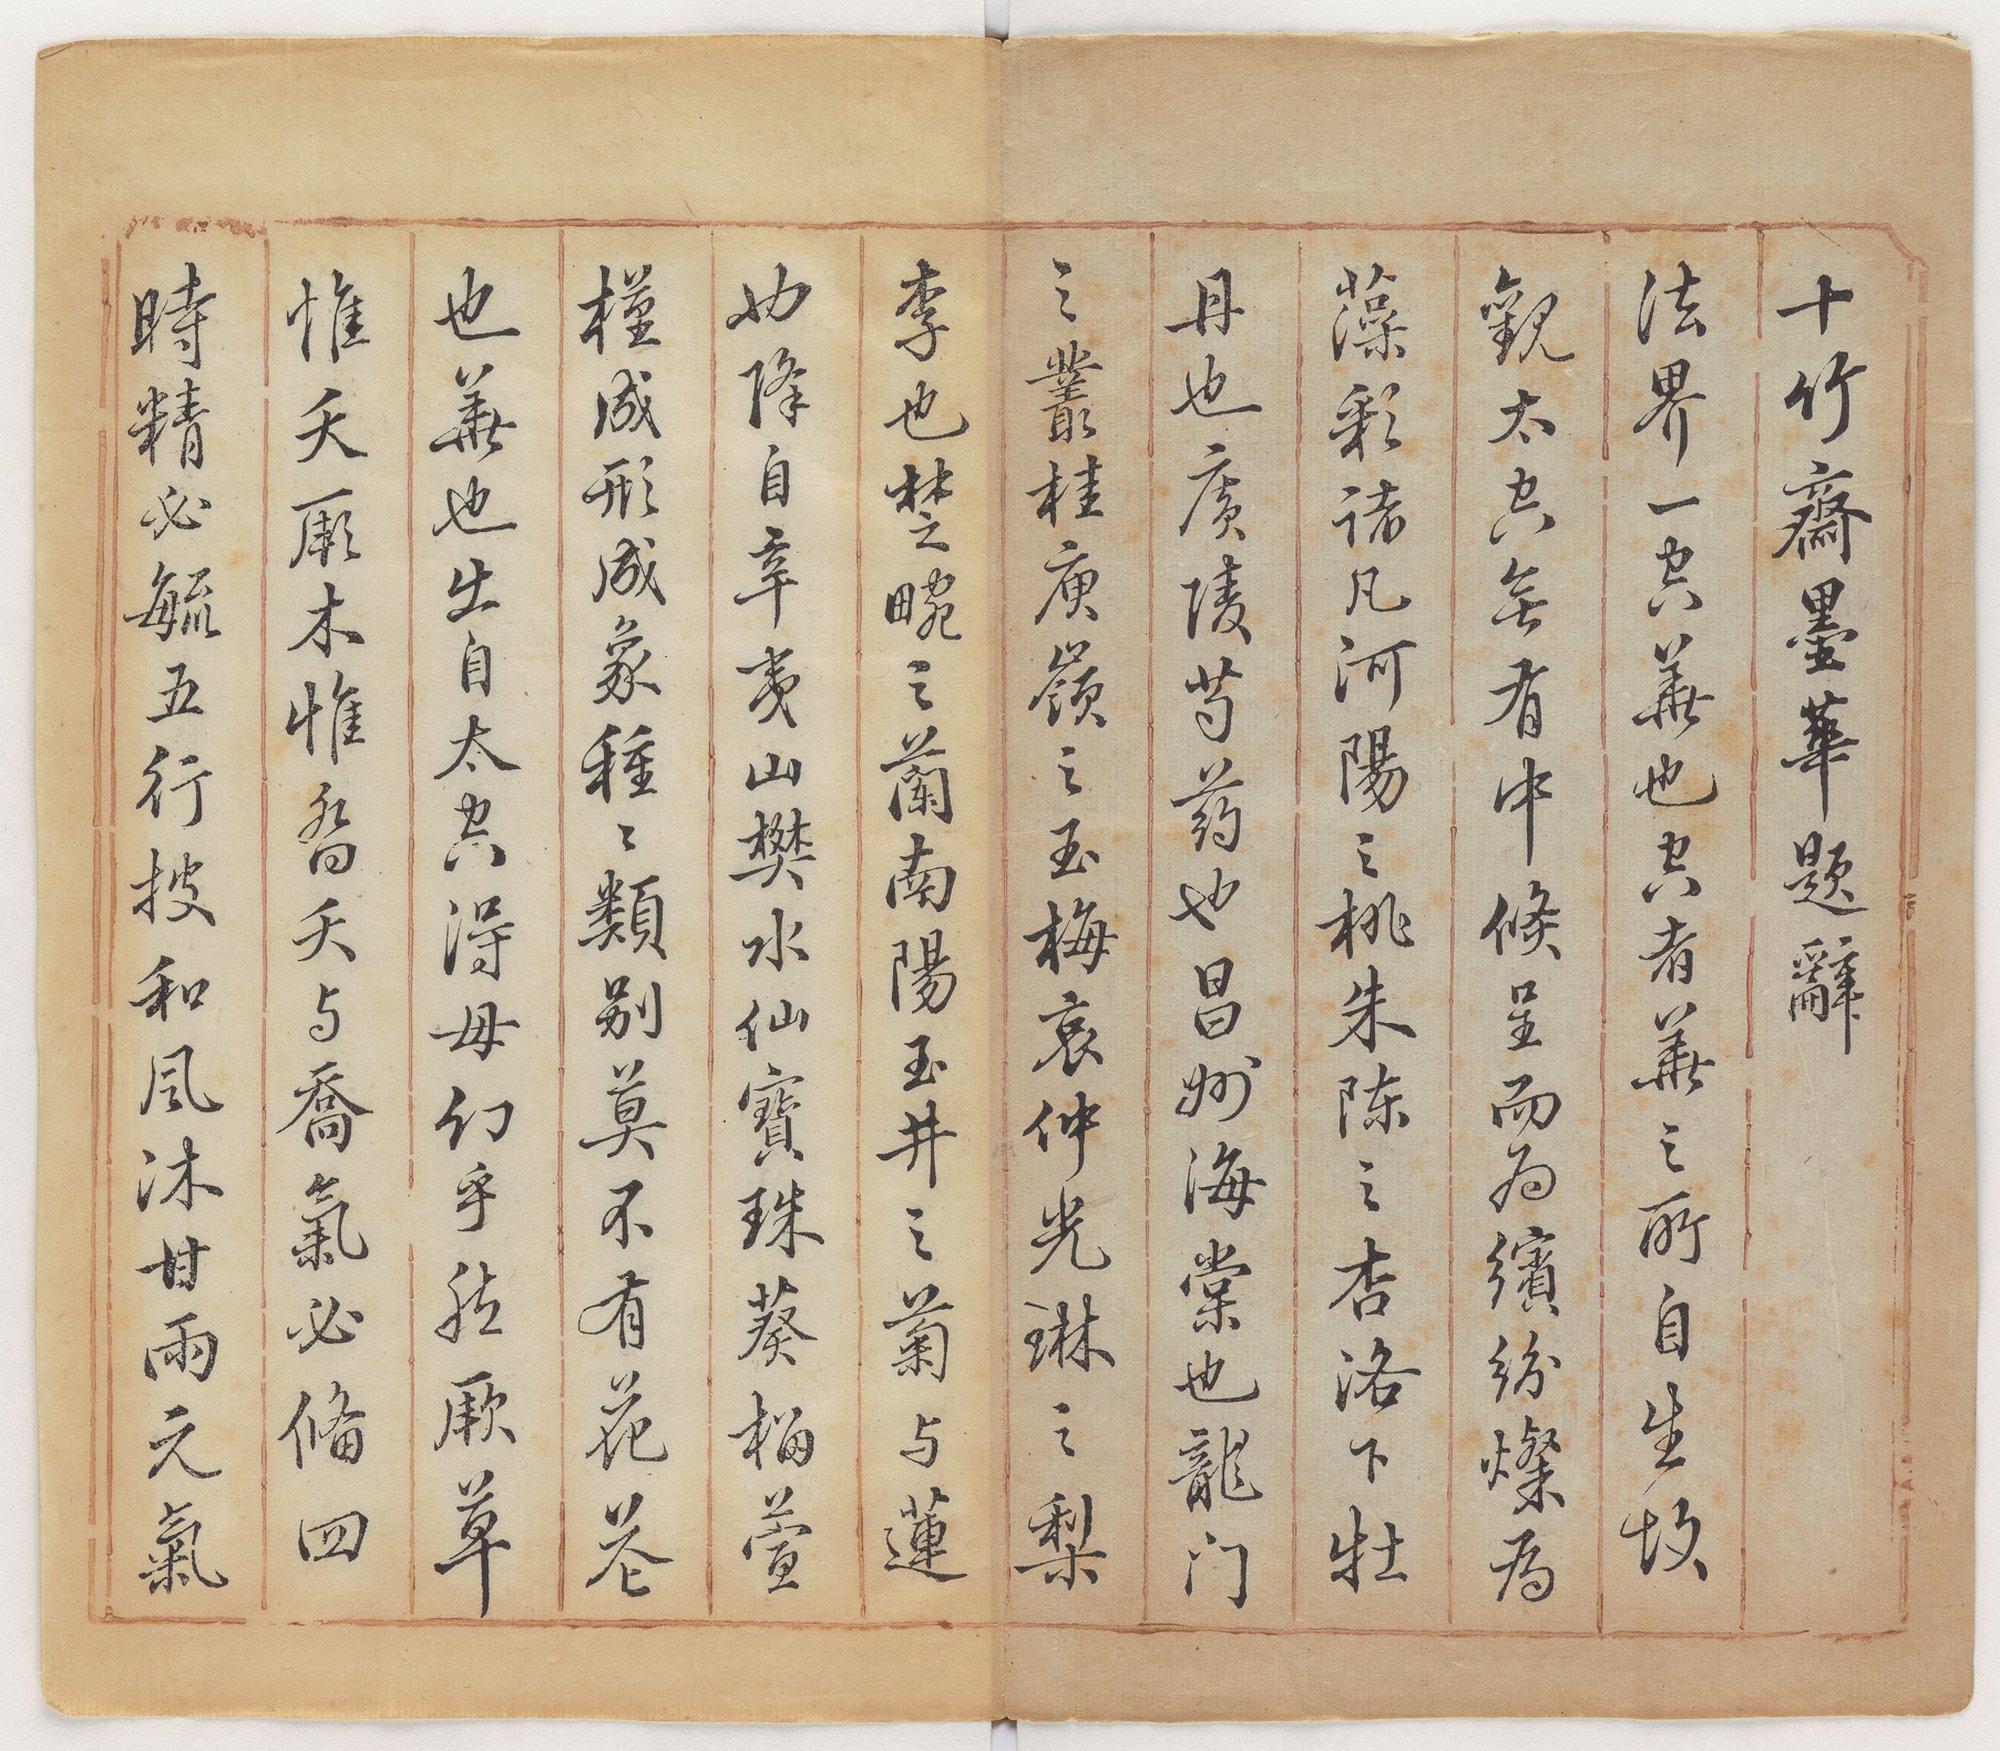 十竹齋墨華題辭
法界一空華也空者華之所自生故
觀太空無有中倏呈而為繽紛燦為
藻彩諸凡河陽之桃朱陳之杏洛下牡
丹也廣陵芍药也昌州海棠也龍门
之叢桂庾嶺之玉梅哀仲光琳之梨
李也楚畹之蘭南陽玉井之菊与蓮
也降自辛夷山樊水仙寶珠葵榴萱
槿成形成象種〻類别莫不有花花
也華也出自太空得毋幻乎然厥草
惟夭厥木惟喬夭与喬氣必俻四
時精必毓五行披和風沐甘雨元氣